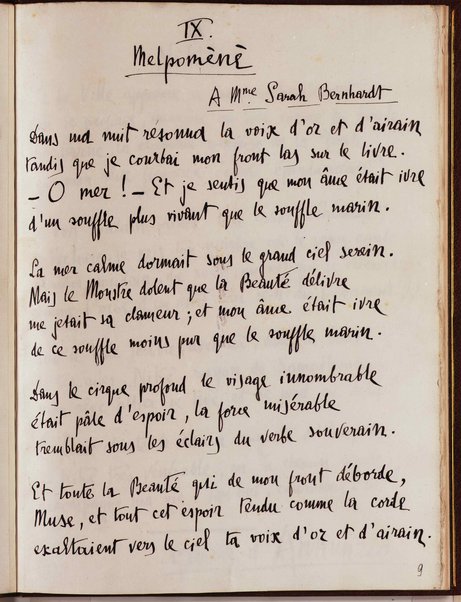 IX.
Melpomènè
A Mme Sarah Bernhardt
Dans ma nuit résonna la voix d'or et d'airain
tandis que je courbai mon front las sur le livre.
– O mer ! – Et je sentis que mon âme était ivre
d'un souffle plus vivant que le souffle marin.
La mer calme dormait sous le grand ciel serein.
Mais le Monstre dolent que la Beauté délivre
me jetait sa clameur ; et mon âme était ivre
de ce souffle moins pur que le souffle marin.
Dans le cirque profond le visage innombrable
était pâle d'espoir, la force misérable
tremblait sous les éclairs du verbe souverain.
Et toute la Beauté qui de mon front déborde,
Muse, et tout cet espoir tendu comme la corde
exaltaient vers le ciel ta voix d'or et d'airain.
9